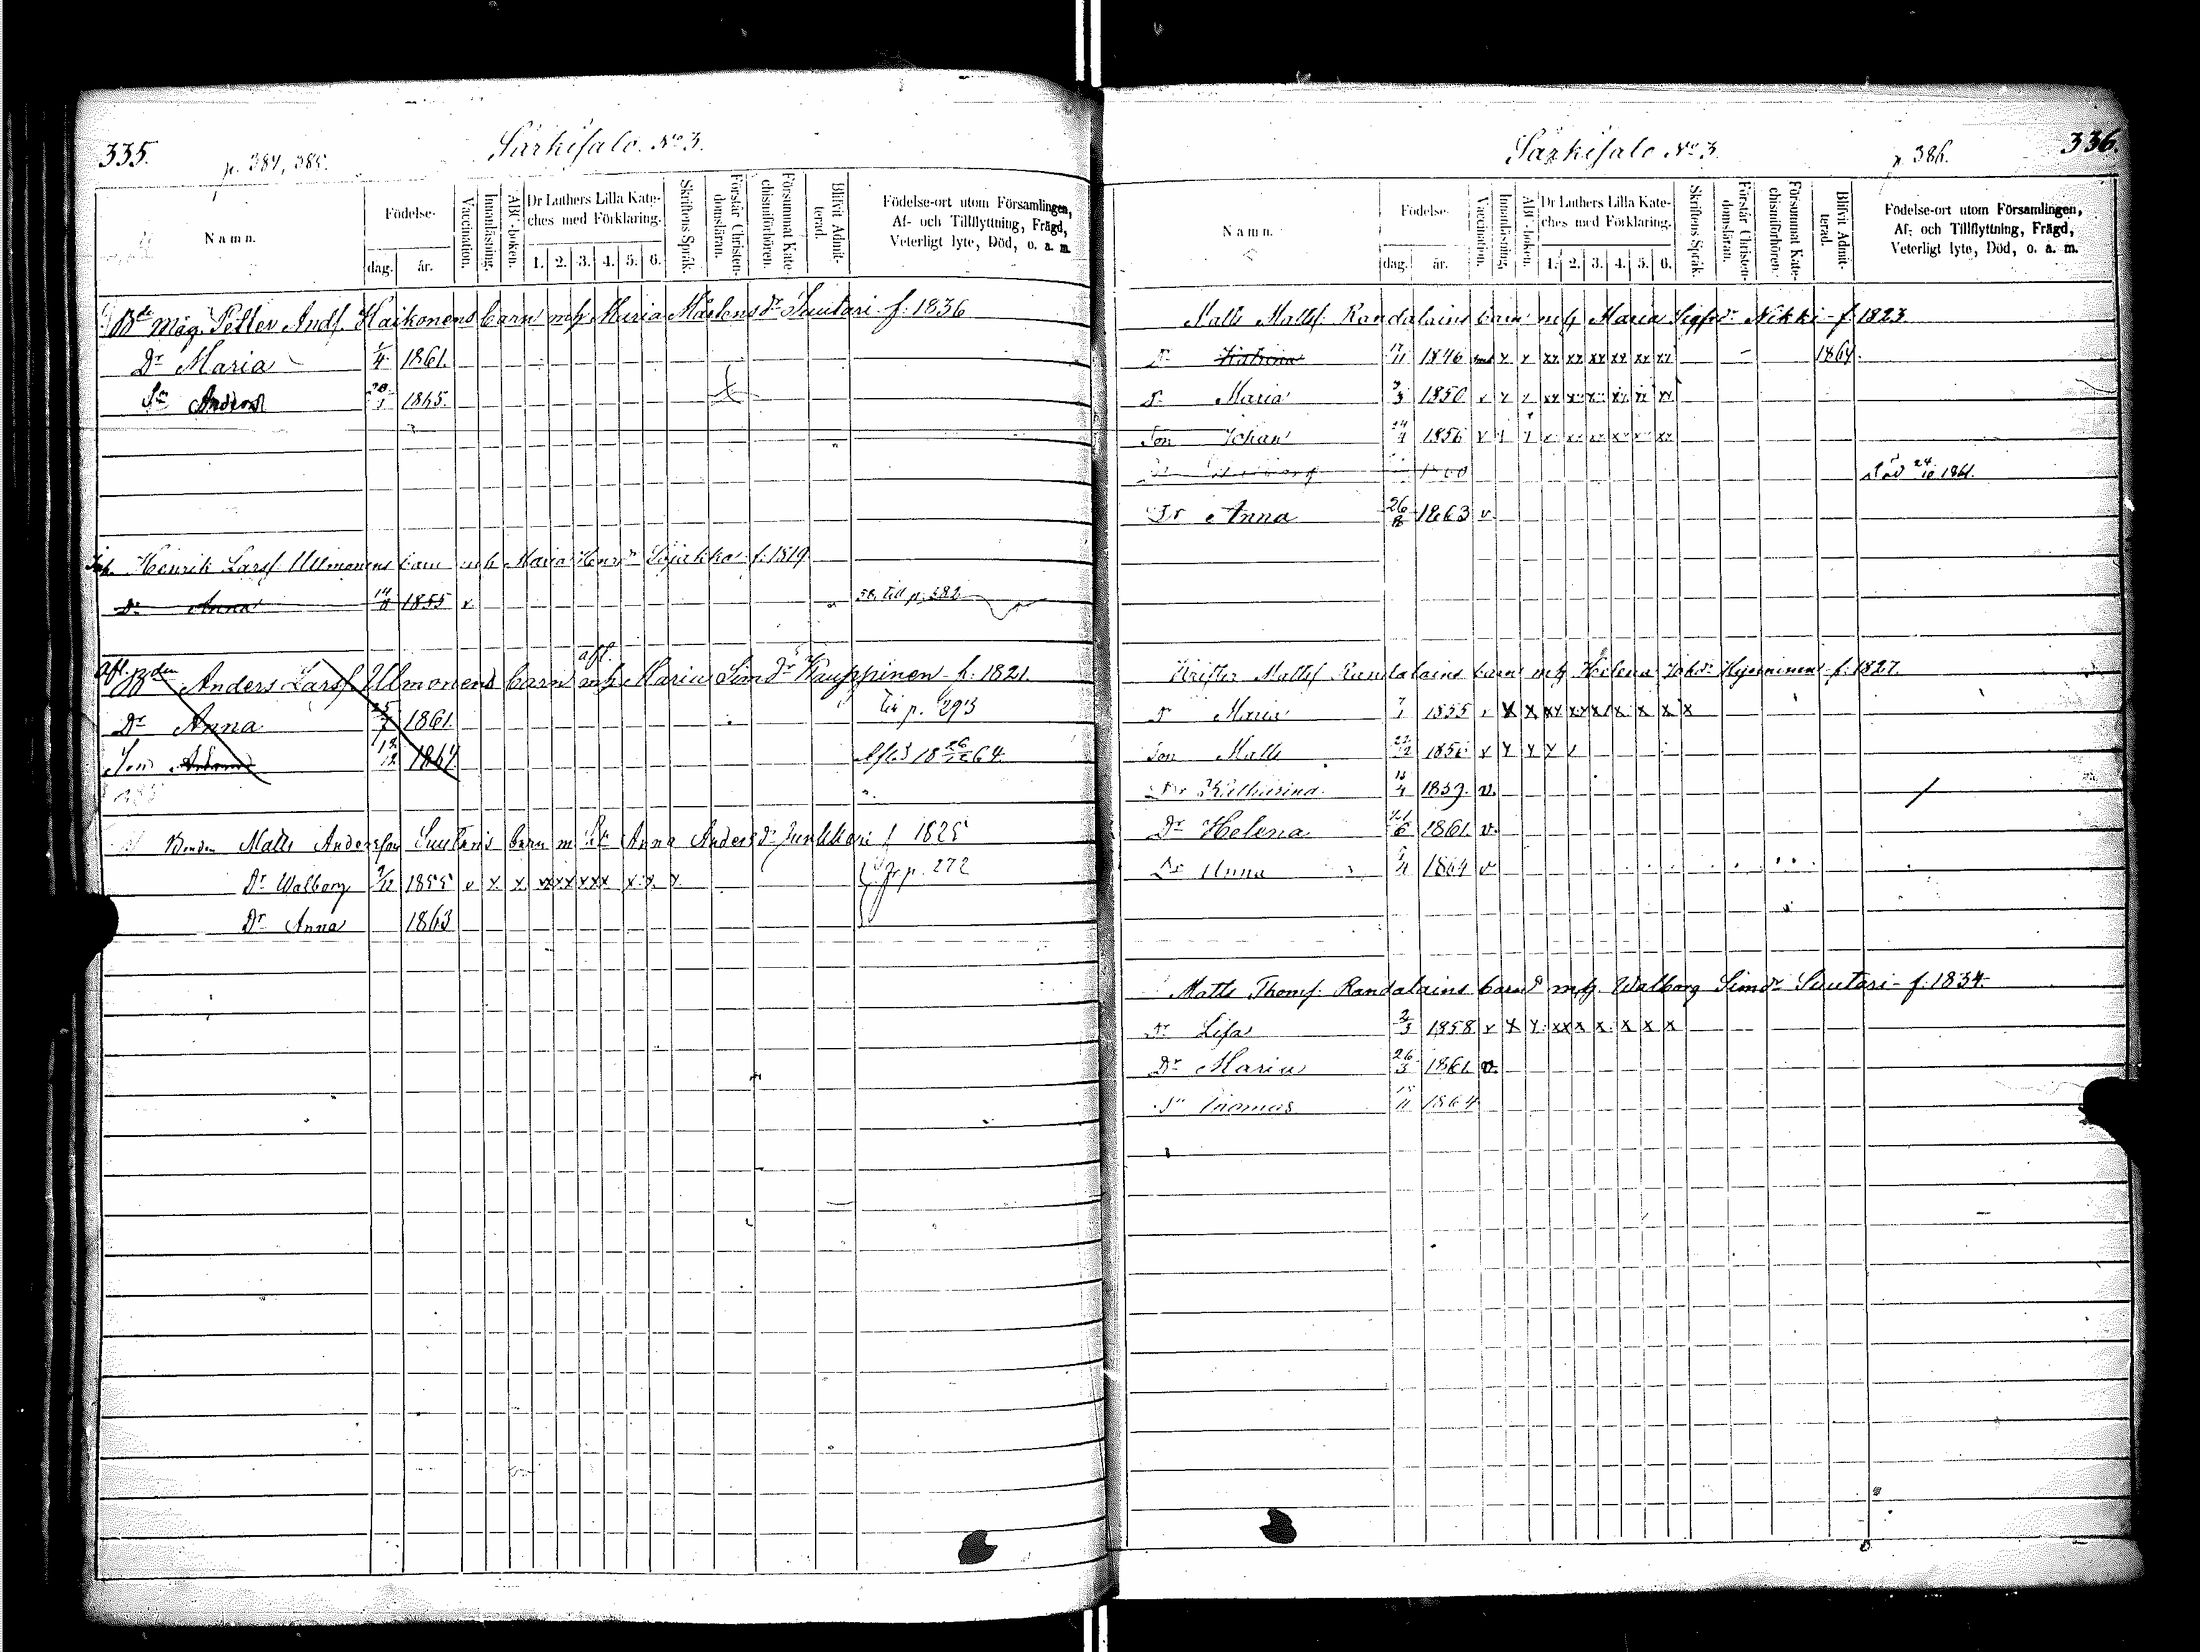 335.
p. 384, 385.
Särkisalo. No 3.
Namn.
Födelse-
dag.
år.
Vaccination.
Innanläsning.
ABC-boken.
Dr Luthers Lilla Kate-
ches med Förklaring.
1. 2. 3. 4. 5. 6.
Skriftens Språk.
Förstår Christen-
domsläran.
Försummat Kate-
chismiförhören.
Blifvit Admit-
terad.
Födelse-ort utom Församlingen,
Af- och Tillflyttning, Frägd,
Veterligt lyte, Död, o. a. m.
Måg. Petter Andf. Haikonens barn mh Maria Mårtens dr Suutari f. 1836
Dr Maria 1/4 1861.
Sn Anders 20/1 1865.
Henrik Larsf Ullmonens barn mh Maria Henrdr f. 1819
Dr Anna 14/8 1855 v. till p. 382
Afl. Bden Anders Larsf Ullmonens barn mh afl. Maria Simdr Kauppinen f. 1821
Dr Anna 25/7 1861. till p. 293
Son Anders 18/12 1864 Afled 18 26/12 64.
Bonden Matts Andersson Suutaris barn m Anna Andersdr Junkkari f 1825
Dr Walborg 7/12 1855 v x x xx xx xxx x x x fr p. 272
Dr Anna 1863
Särkisalo No 3.
p. 386.
336.
Namn.
Födelse-
dag.
år.
Vaccination.
Innanläsning.
ABC-boken.
Dr Luthers Lilla Kate-
ches med Förklaring.
1. 2. 3. 4. 5. 6.
Skriftens Språk.
Förstår Christen-
domsläran.
Försummat Kate-
chismiförhören.
Blifvit Admit-
terad.
Födelse-ort utom Församlingen,
Af- och Tillflyttning, Frägd,
Veterligt lyte, Död, o. a. m.
Matts Mattsf. Randalains barn mh Maria Sigfrdr Nikki f. 1823.
Dr Katrina 17/11 1846 x x xx xx xx xx xx xx 1864.
Dr Maria 3/3 1850 v x x xx xx xx xx xx xx
Son Johan 24/4 1856 v x x x xx xx xx xx xx
Dr Walborg 1860 Död 24/10 1861.
Dr Anna 26/8 1863 v.
Krister Mattsf Randalains barn mh Helena Johdr Hyvöninen f. 1827.
Dr Maria 7/1 1855 v x x xx xx x x x x x
Son Matts 22/12 1856 v x x x x
Dr Katharina 18/4 1859. v.
Dr Helena 21/6 1861. v.
Dr Anna 5/4 1864 v
Matts Thomf. Randalains barn mh Walborg Simdr Suutari f. 1834.
Dr Lisa 2/3 1858 v x x xx x x x x x
Dr Maria 26/3 1861 v.
Sn Thomas 15/11 1864